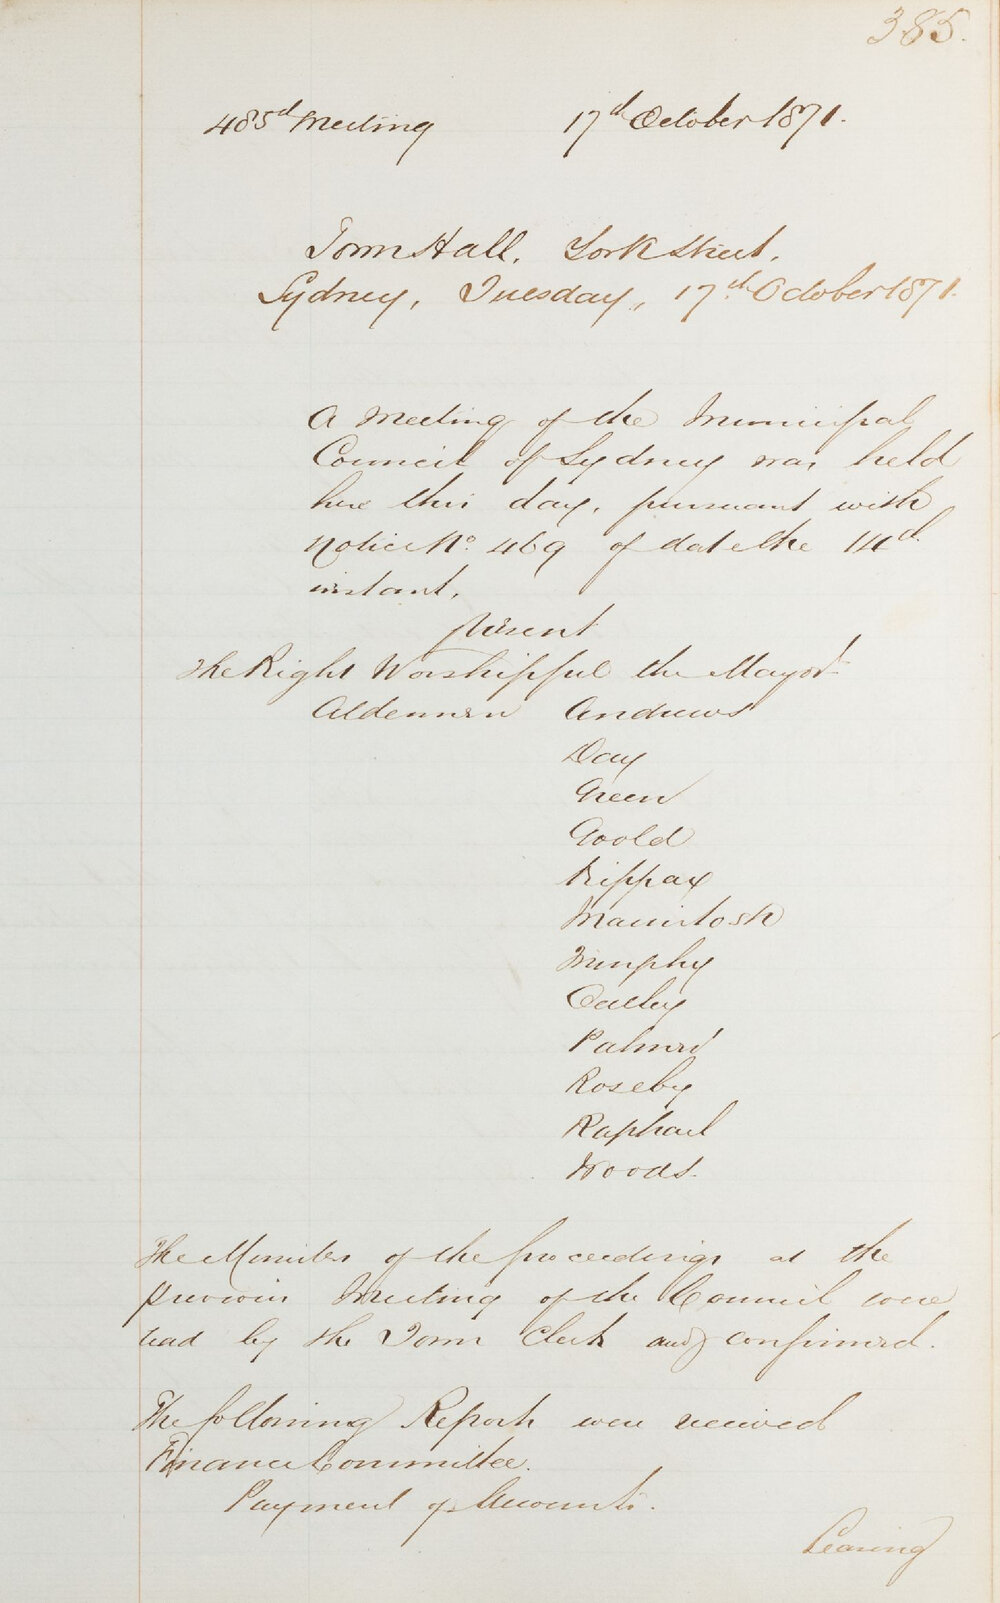 385.
485th Meeting 17th October 1871.
Town Hall, York Street,
Sydney, Tuesday, 17th October 1871.
A Meeting of the Municipal
Council of Sydney was held
here this day, pursuant with
Notice No. 469 of date the 14th
instant.
Present
The Right Worshipful the Mayor
Aldermen Andrews
Day
Green
Goold
Kippax
Macintosh
Murphy
Oatley
Palmer
Roseby
Raphael
Woods.
The Minutes of the proceedings at the
previous Meeting of the Council were
read by the Town Clerk and confirmed.
The following Reports were received
Finance Committee.
Payment of Accounts.
Leasing